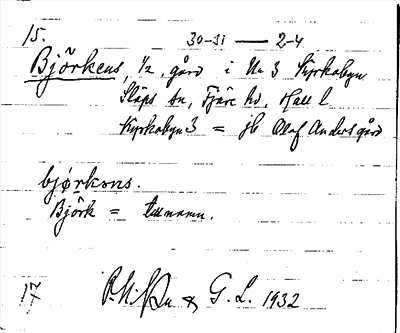 15.
30-31 — 2-4
Björkens, 1/2 gård i No 3 Kyrkobyn
Släps sn, Fjäre hd, Hall l.
Kyrkobyn 3 = jb Olof Anders gård
bjørkons.
Björk = tillnamn.
17
G. L. 1932